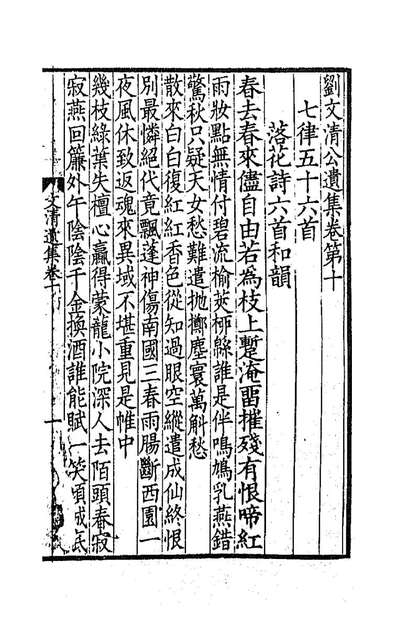 劉文清公遺集卷第十
七律五十六首
落花詩六首和韻
春去春來儘自由若為枝上蹔淹畱摧殘有恨啼紅
雨妝點無情付碧流榆莢柳絲誰是伴鳴鳩乳燕錯
驚秋只疑天女愁難遣拋擲塵寰萬斛愁
散來白白復紅紅香色從知過眼空縱遣成仙終恨
別最憐絕代竟飄蓬神傷南國三春雨腸斷西園一
夜風休致返魂來異域不堪重見是帷中
幾枝綠葉失檀心贏得蒙龍小院深人去陌頭春寂
寂燕回簾外午陰陰千金換酒誰能賦一笑傾城底
文清遺集卷十
一